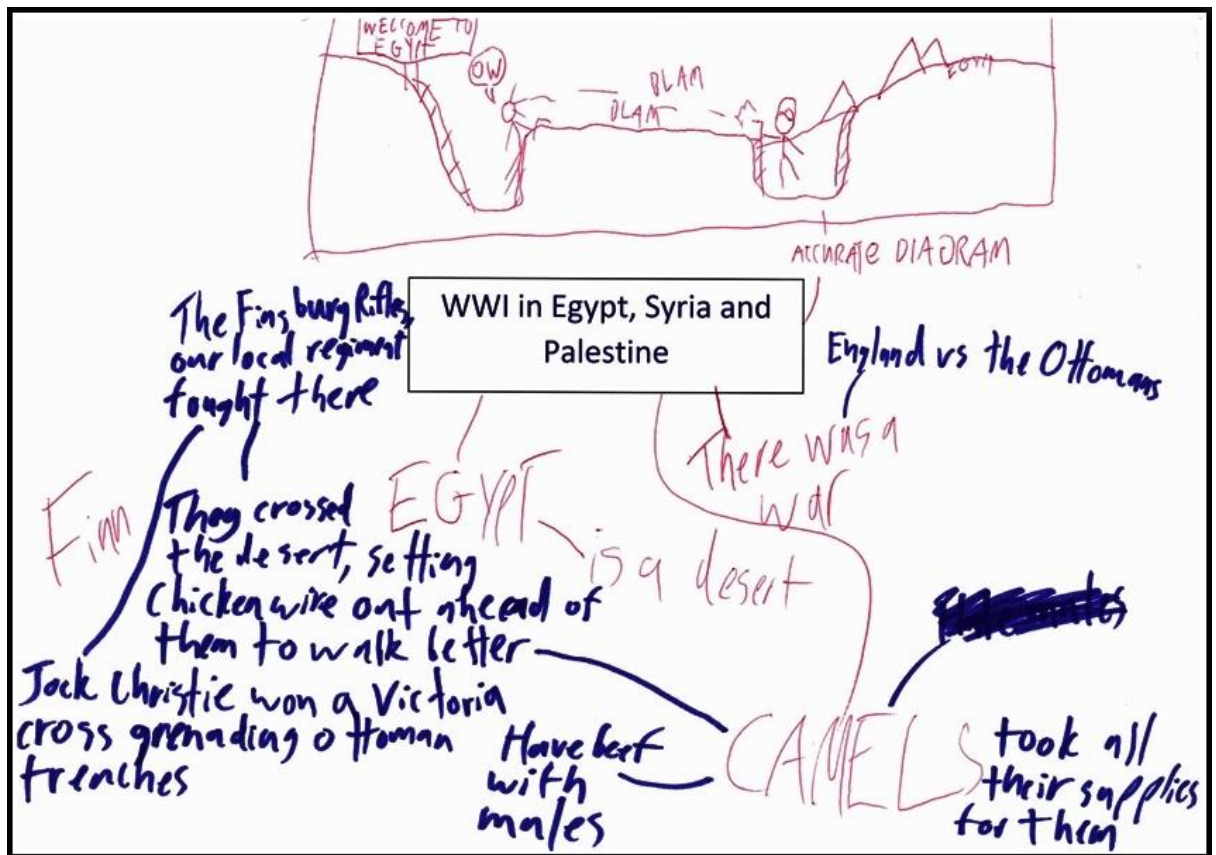 WELCOME TO
EGYPT
OW
BLAM
BLAM
EGYPT
ACCURATE DIAGRAM
WWI in Egypt, Syria and
Palestine
The Finsbury Rifles,
our local regiment
fought there
England vs the Ottomans
There was a
war
Finn
EGYPT
is a desert
They crossed
the desert, setting
Chicken wire out ahead of
them to walk better
Jack Christie won a Victoria
cross grenading ottoman
trenches
Have beef
with
males
CAMELS
took all
their supplies
for them